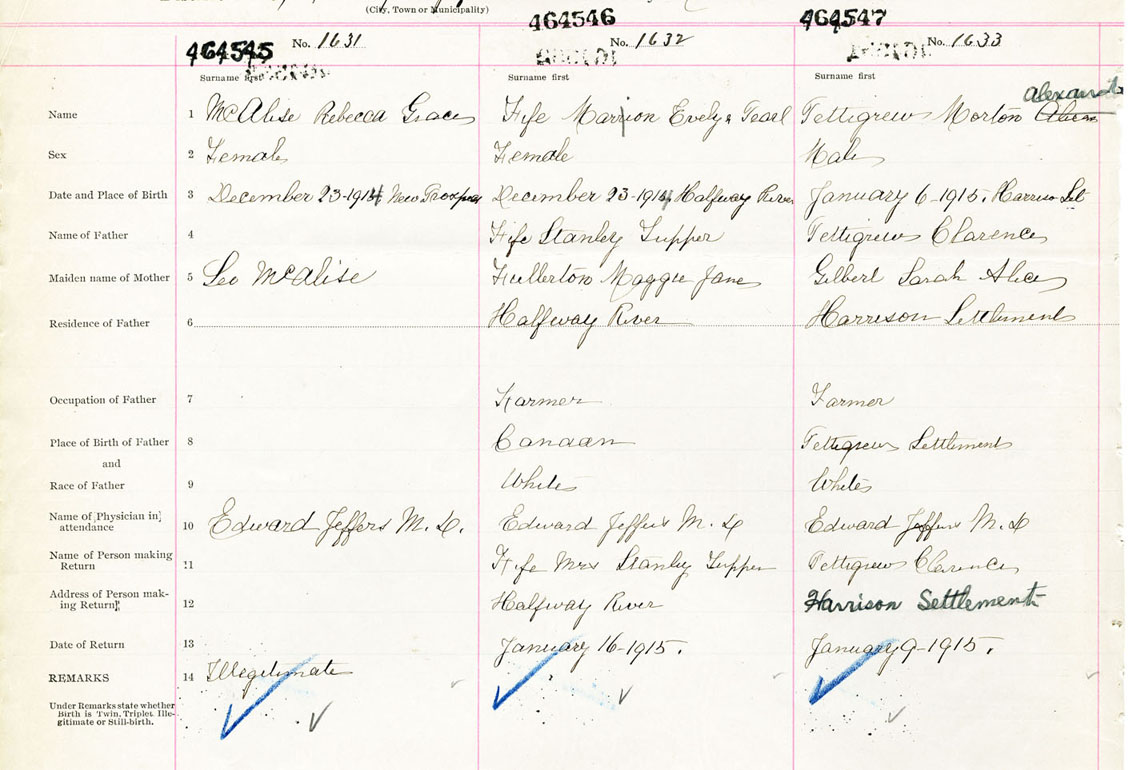 (City, Town or Municipality)
464545 No. 1631 464546 No. 1632 464547 No. 1633
Surname first Surname first Surname first
Alexand
Name 1 McAlise Rebecca Grace Fife Marrion Evelyn Pearl Pettigrew Morton
Sex 2 Female Female Male
Date and Place of Birth 3 December 23-1914 New Prospec December 23-1914 Halfway River January 6-1915, Harrison Set
Name of Father 4 Fife Stanley Tupper Pettigrew Clarence
Maiden name of Mother 5 Leo McAlise Fullerton Maggie Jane Gilbert Sarah Alice
Residence of Father 6 Halfway River Harrison Settlement
Occupation of Father 7 Farmer Farmer
Place of Birth of Father 8 Canaan Pettigrew Settlement
and
Race of Father 9 White White
Name of [Physician in] attendance 10 Edward Jeffers M. D. Edward Jeffers M. D Edward Jeffers M. D
Name of Person making Return 11 Fife Mrs Stanley Tupper Pettigrew Clarence
Address of Person making Return 12 Halfway River Harrison Settlement
Date of Return 13 January 16-1915. January 9-1915.
REMARKS 14 Illegitimate
Under Remarks state whether
Birth is Twin, Triplet, Ille-
gitimate or Still-birth.